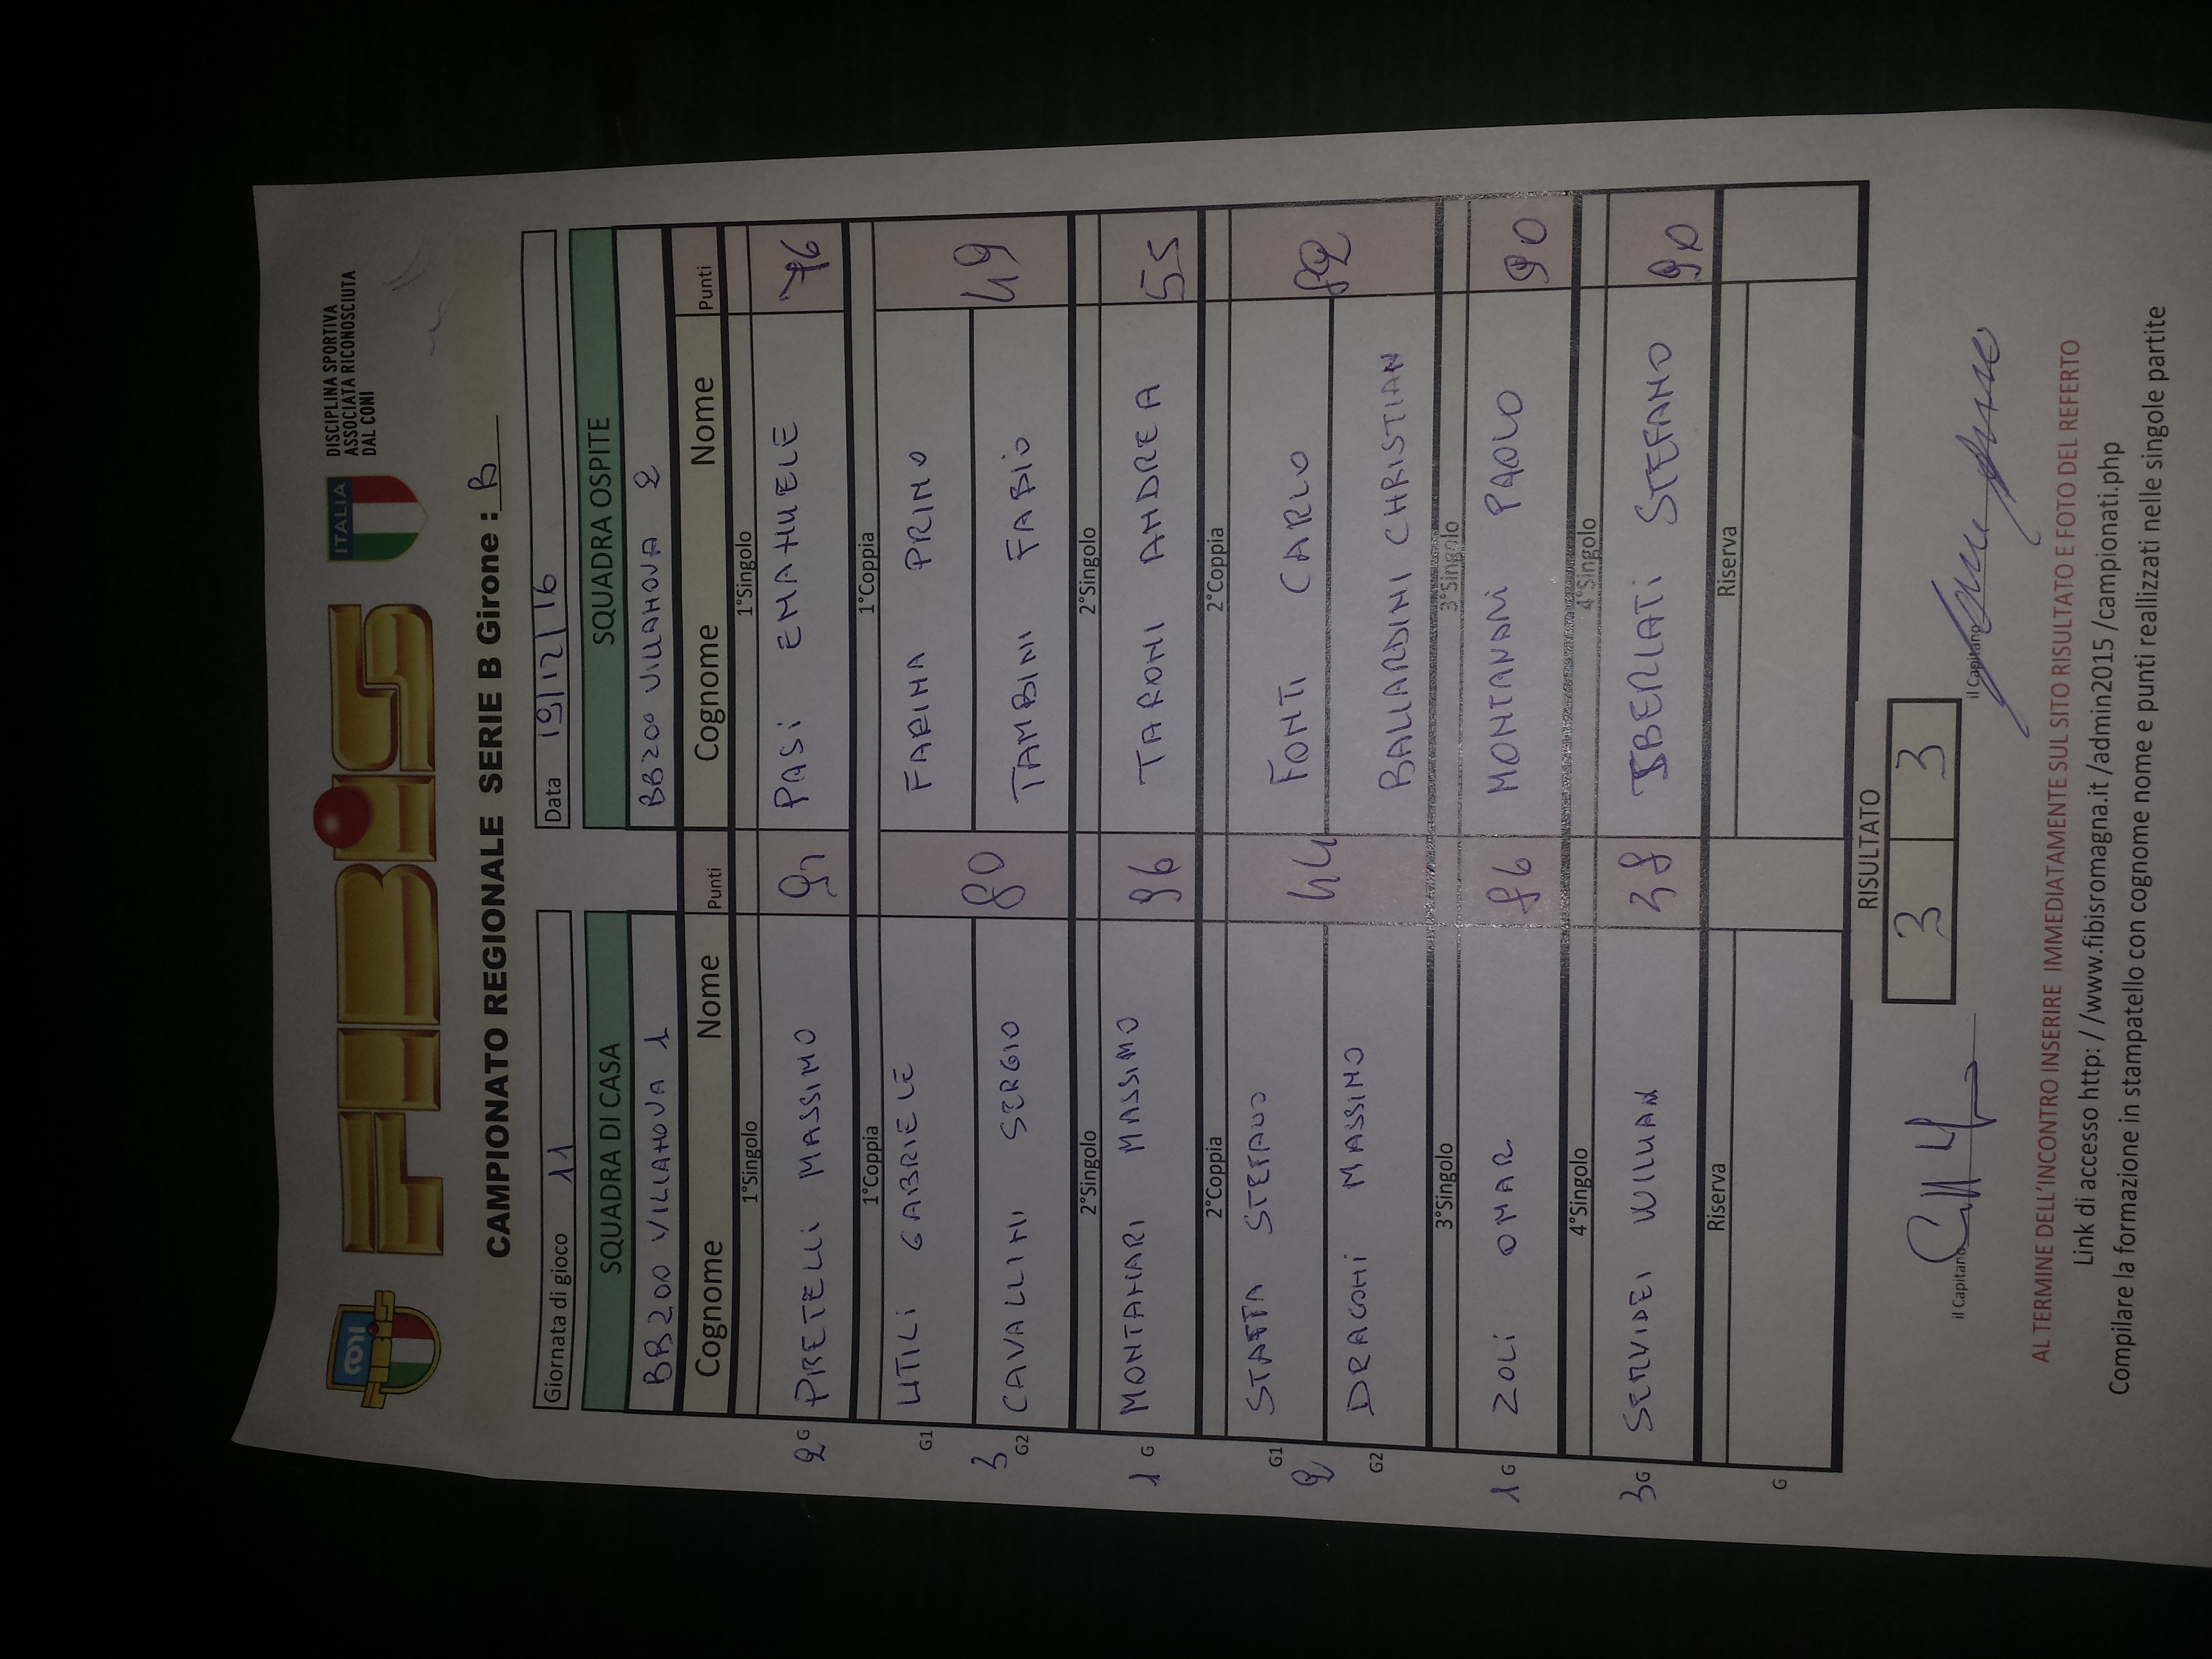 FIBiS
ITALIA
DISCIPLINA SPORTIVA
ASSOCIATA RICONOSCIUTA
DAL CONI
CAMPIONATO REGIONALE SERIE B Girone : B
Giornata di gioco 11 Data 19/12/16
SQUADRA DI CASA SQUADRA OSPITE
BB200 VILLANOVA 1 BB200 VILLANOVA 2
Cognome Nome Punti Cognome Nome Punti
1°Singolo 1°Singolo
2 G PIRETELLI MASSIMO 91 PASI EMANUELE 76
1°Coppia 1°Coppia
G1 UTILI GABRIELE FARINA PRIMO
3 80 49
G2 CAVALLINI SERGIO TAMBINI FABIO
2°Singolo 2°Singolo
1 G MONTANARI MASSIMO 96 TARONI ANDREA 55
2°Coppia 2°Coppia
G1 STAFFA STEFANO FONTI CARLO
2 44 82
G2 DRAGONI MASSIMO BALLARDINI CHRISTIAN
3°Singolo 3°Singolo
1 G ZOLI OMAR 86 MONTANARI PAOLO 90
4°Singolo 4°Singolo
3 G SERVIDEI WILLIAM 38 IBERLATI STEFANO 90
Riserva Riserva
G
RISULTATO
3 3
il Capitano il Capitano
AL TERMINE DELL'INCONTRO INSERIRE IMMEDIATAMENTE SUL SITO RISULTATO E FOTO DEL REFERTO
Link di accesso http: / /www.fibisromagna.it /admin2015 /campionati.php
Compilare la formazione in stampatello con cognome nome e punti reallizzati nelle singole partite